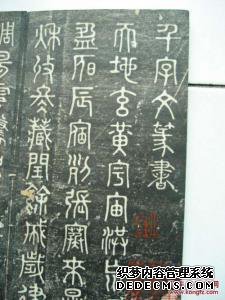 千字文篆書
天地玄黃宇宙洪荒
盈昃辰宿列張寒來暑
秋收冬藏閏餘成歲律
調陽雲騰
织梦内容管理系统
DEDECMS.COM